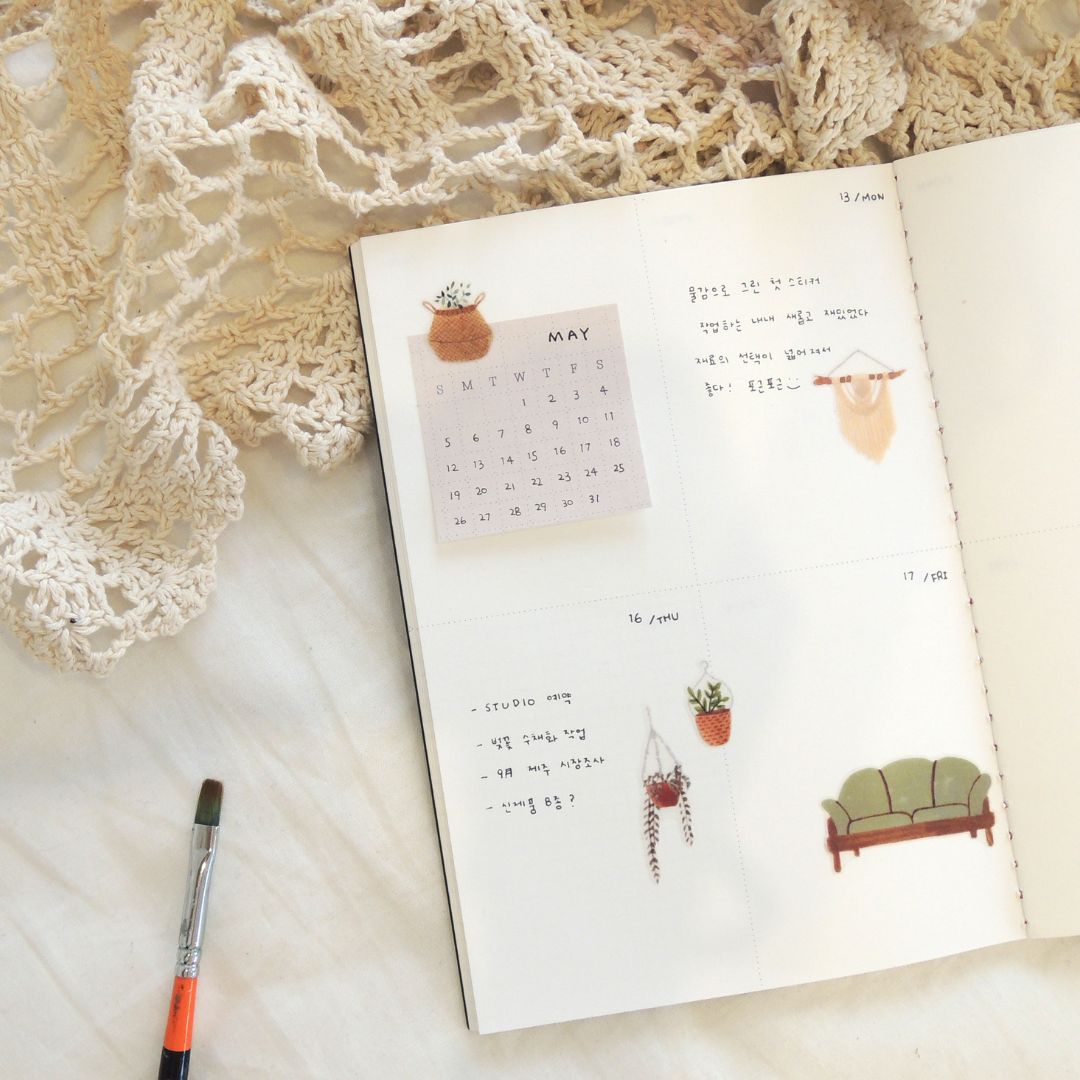 MAY
S M T W T F S
1 2 3 4
5 6 7 8 9 10 11
12 13 14 15 16 17 18
19 20 21 22 23 24 25
26 27 28 29 30 31
13 /MON
물감으로 그린 첫 스티커
작업하는 내내 새롭고 재밌었다
재료의 선택이 넓어져서
좋다! 포근포근
16 /THU
- STUDIO 예약
- 벚꽃 수채화 작업
- 9月 제주 시장조사
- 신제품 8종?
17 /FRI